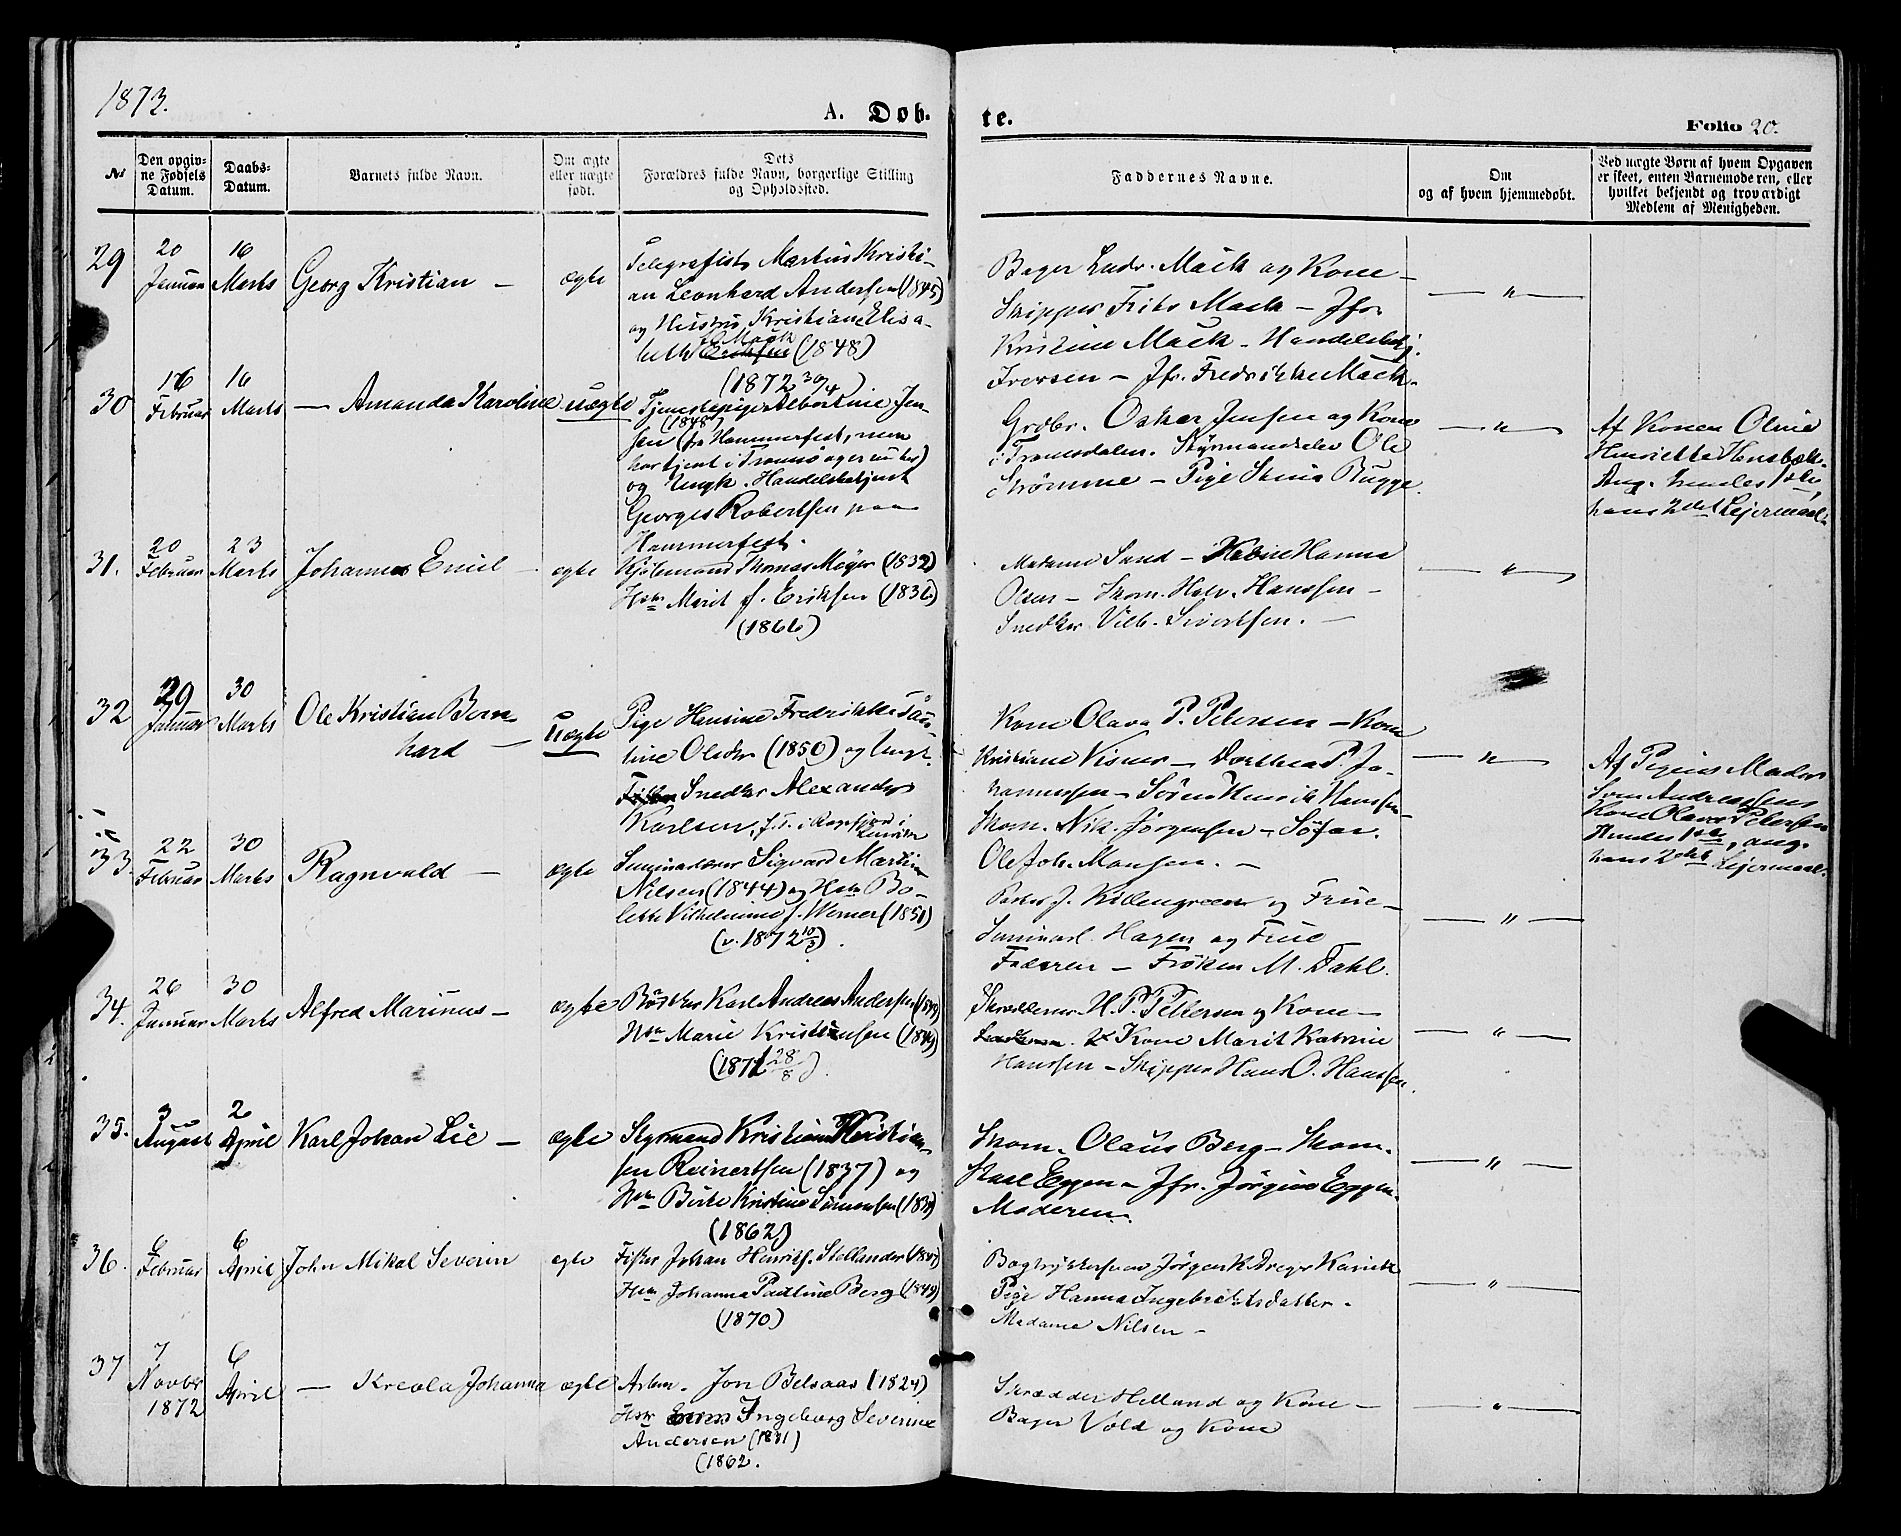 1873.
A. Døb-
te.
Folio 20.
No
Den opgiv-
ne Fødsels
Datum.
Daabs-
Datum.
Barnets fulde Navn.
Om ægte
eller uægte
født.
Dets
Forældres fulde Navn, borgerlige Stilling
og Opholdssted.
Faddernes Navne.
Om
og af hvem hjemmedøbt.
Ved uægte Børn af hvem Opgaven
er skeet, enten Barnemoderen, eller
hvilket bekjendt og troværdigt
Medlem af Menigheden.
29
20
Januar
16
Marts
Georg Kristian —
ægte
Telegrafist Martius Kristi-
an Leonhard Andersen (1845)
og Hustru Kristiane Elisa-
beth Mack (1848)
(1872 30/4).
Bager Ludv. Mack og Kone —
Skipper Frits Mack — Jfr.
Kristine Mack - Handelsbetj.
Iversen — Jfr. Fredrikke Mack.
— " —
30
16
Februar
16
Marts
— Amanda Karoline
uægte
Tjenestepige Albertine Jen-
(1848)
sen (fra Hammerfest, men
har tjent i Tromsø
og Ungk. Handelsbetjent
Georges Robertsen paa
Hammerfest.
Grdbr. Oskar Jensen og Kone
i Tromsdalen. Styrmandselev Ole
Strømme — Pige Stina Rugge.
— " —
Af Konen Oline
Henriette Hensbæk.
Ang. hendes 1ste,
hans 2det Lejermaal.
31.
20
Februar
23
Marts
Johannes Emil —
ægte
Thomas Møyer (1832)
Hstr Marit f. Eriksen (1836)
(1866)
Madame Sund — Hanna
Olsen — Skom. Halv. Hanssen —
Snedker Vilh. Sivertsen. —
— " —
32
29
Januar
30
Marts
Ole Kristian Bern-
hard —
Uægte
Pige Hansine Fredrikke Pau-
line Olsdtr (1850) og Ungk.
Snedker Alexander
Karlsen, f. T. i
Kone Olava P. Petersen — Kone
Kristiane Visner — Dorthea P. Jo-
hannessen — Søren Henrik Hanssen
Skom. Nik. Jørgensen — Søfar.
Ole Joh. Monsen. —
— " —
Af Pigens Moder
Kone Olava Petersen
Hendes 1ste, ang.
hans 2det Lejermaal.
33.
22
Februar
30
Marts
Ragnvald —
ægte
Seminarlærer Sigvard Martin
Nilsen (1844) og Hstr Bo-
lette Vilhelmine f. Werner (1851)
(v. 1872 10/5).
J. Killengreen og Frue —
Seminarl. Hagen og Frue
Faderen — Frøken M. Dahl.
— " —
34.
26
Januar
30
Marts
Alfred Marinus —
ægte
Bødker Karl Andreas Andersen (1849)
Hstr Marie Kristiansen (1849)
(1871 28/8).
Skrædderm H. P. Pettersen og Kone —
Kone Marit Katrine
Hanssen — Skipper Hans O. Hanssen.
— " —
35.
3
August
2
April
Karl Johan Lie —
ægte
Styrmand Kristian Kristian-
sen Reinertsen (1837) og
Hstr Birte Kristine Simonsen (1839)
(1862)
Skom. Olaus Berg — Skom.
Eggen — Jfr. Jørgine Eggen
Moderen.
— " —
36.
6
Februar
6
April
John Mikal Severin
ægte
Fisker Johan Henrik Stellander (1847)
Hstr Johanna Pauline Berg (1849)
(1870)
Jørgen K. Dreyer
Pige Hanna Ingebrigtsdatter —
Madame Nilsen —
— " —
37
7
Novbr
1872
6
April
— Kreola Johanna
ægte
Arbm. Jon Belsaas (1824)
Hstr Ingeborg Severine
Andersen (1831)
(1862.
Skrædder Helland og Kone —
Bager Vold og Kone
— " —